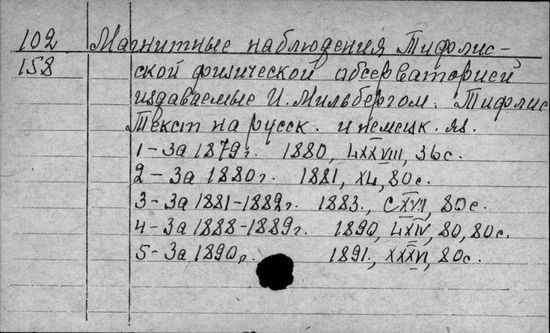 102 Магнитные наблюдения Тифлис-
158 ской физической обсерваторией
издаваемые И. Мильбергом. Тифлис
Текст на русск. и немецк. яз.
1 - За 1879г. 1880, LXXVIII, 36с.
2 - За 1880г. 1881, XL, 80с.
3 - За 1881-1882г. 1883., CXVI, 80с.
4 - За 1888-1889г. 1890, LXIV, 80, 80с.
5 - За 1890г. 1891., XXXVI, 80с.